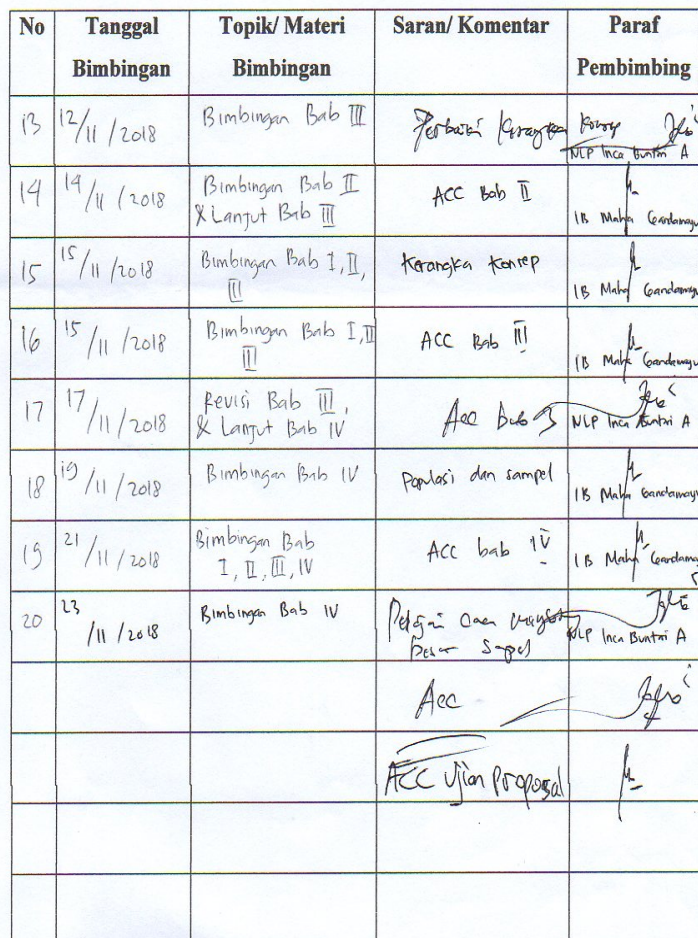 No Tanggal Bimbingan Topik/ Materi Bimbingan Saran/ Komentar Paraf Pembimbing
13 12/11/2018 Bimbingan Bab III Perbaiki Kerangka Konsep NLP Inca Buntari A
14 14/11/2018 Bimbingan Bab II ACC Bab II
& Lanjut Bab III IB Maha Gandamayu
15 15/11/2018 Bimbingan Bab I, II, Kerangka Konsep
III IB Maha Gandamayu
16 15/11/2018 Bimbingan Bab I, II ACC Bab III
III IB Maha Gandamayu
17 17/11/2018 Revisi Bab III, Acc Bab 3
& Lanjut Bab IV NLP Inca Buntari A
18 19/11/2018 Bimbingan Bab IV Populasi dan sampel IB Maha Gandamayu
19 21/11/2018 Bimbingan Bab ACC bab IV
I, II, III, IV IB Maha Gandamay
20 23/11/2018 Bimbingan Bab IV NLP Inca Buntari A
Acc
ACC Ujian Proposal